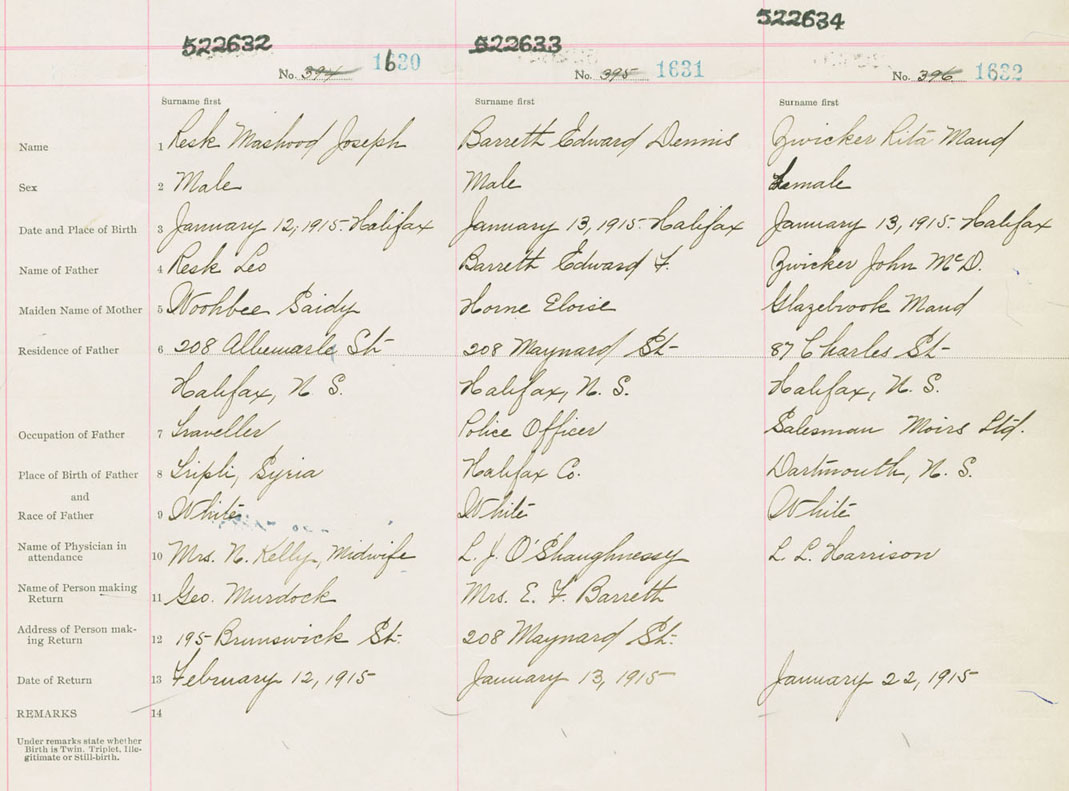 522632 522633 522634
No. 394 1630 No. 395 1631 No. 396 1632
Surname first Surname first Surname first
Name 1 Resk Mashood Joseph Barrett Edward Dennis Zwicker Rita Maud
Sex 2 Male Male Female
Date and Place of Birth 3 January 12, 1915. Halifax January 13, 1915. Halifax January 13, 1915. Halifax
Name of Father 4 Resk Leo Barrett Edward F. Zwicker John McD.
Maiden Name of Mother 5 Woohbee Saidy Horne Eloise Glazebrook Maud
Residence of Father 6 208 Albemarle St. 208 Maynard St. 87 Charles St.
Halifax, N. S. Halifax, N. S. Halifax, N. S.
Occupation of Father 7 Traveller Police Officer Salesman Moirs Ltd.
Place of Birth of Father 8 Tripli, Syria Halifax Co. Dartmouth, N. S.
and
Race of Father 9 White White White
Name of Physician in
attendance 10 Mrs. N. Kelly, Midwife L. J. O'Shaughnessy L. L. Harrison
Name of Person making
Return 11 Geo. Murdock Mrs. E. F. Barrett
Address of Person mak-
ing Return 12 195 Brunswick St. 208 Maynard St.
Date of Return 13 February 12, 1915 January 13, 1915 January 22, 1915
REMARKS 14
Under remarks state whether
Birth is Twin. Triplet, Ille-
gitimate or Still-birth.